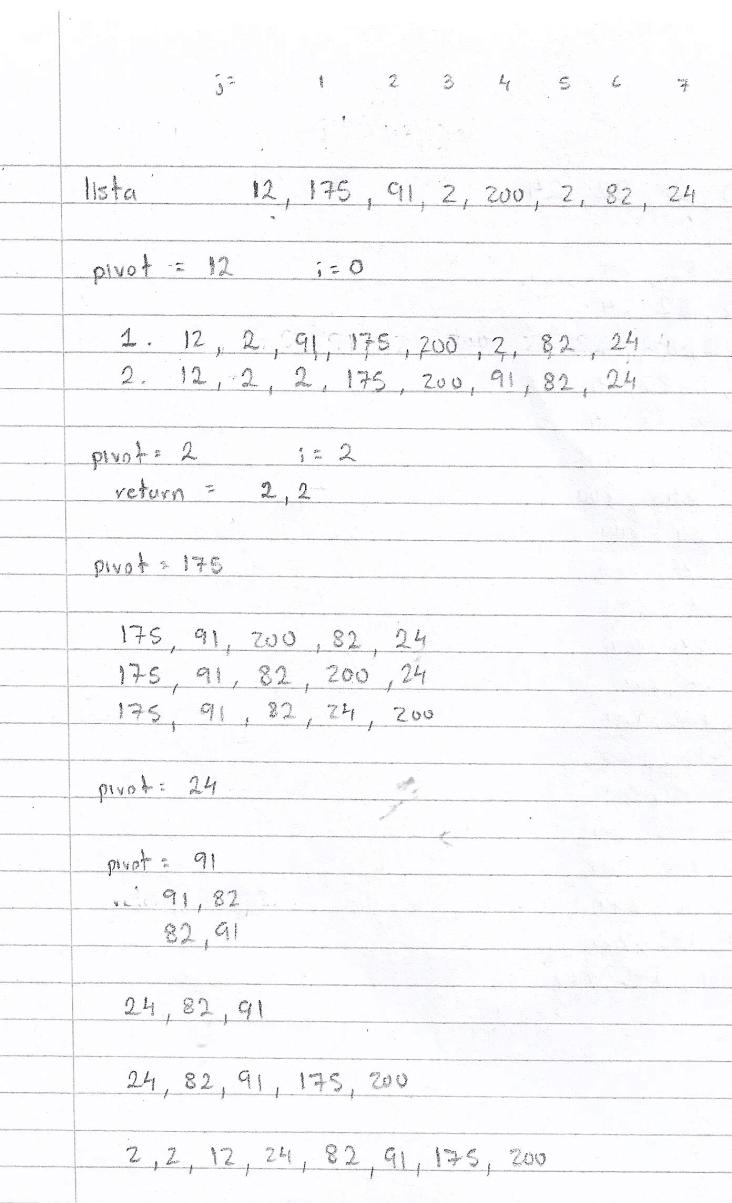 j= 1 2 3 4 5 6 7
lista 12, 175, 91, 2, 200, 2, 82, 24
pivot = 12 i=0
1. 12, 2, 91, 175, 200, 2, 82, 24
2. 12, 2, 2, 175, 200, 91, 82, 24
pivot = 2 i = 2
return = 2, 2
pivot = 175
175, 91, 200, 82, 24
175, 91, 82, 200, 24
175, 91, 82, 24, 200
pivot = 24
pivot = 91
91, 82
82, 91
24, 82, 91
24, 82, 91, 175, 200
2, 2, 12, 24, 82, 91, 175, 200